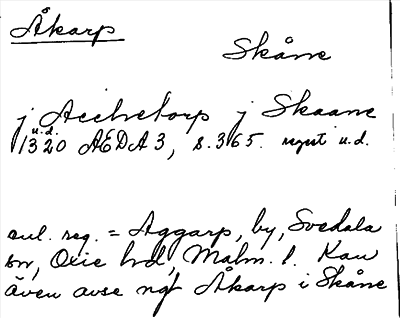 Åkarp
Skåne
j Acchetorp j Skaane
u.d.
1320 AEDA 3, s. 365. regest u.d.
enl. reg. = Aggarp, by, Svedala
sn, Oxie hrd, Malm. l. Kan
även avse ngt Åkarp i Skåne